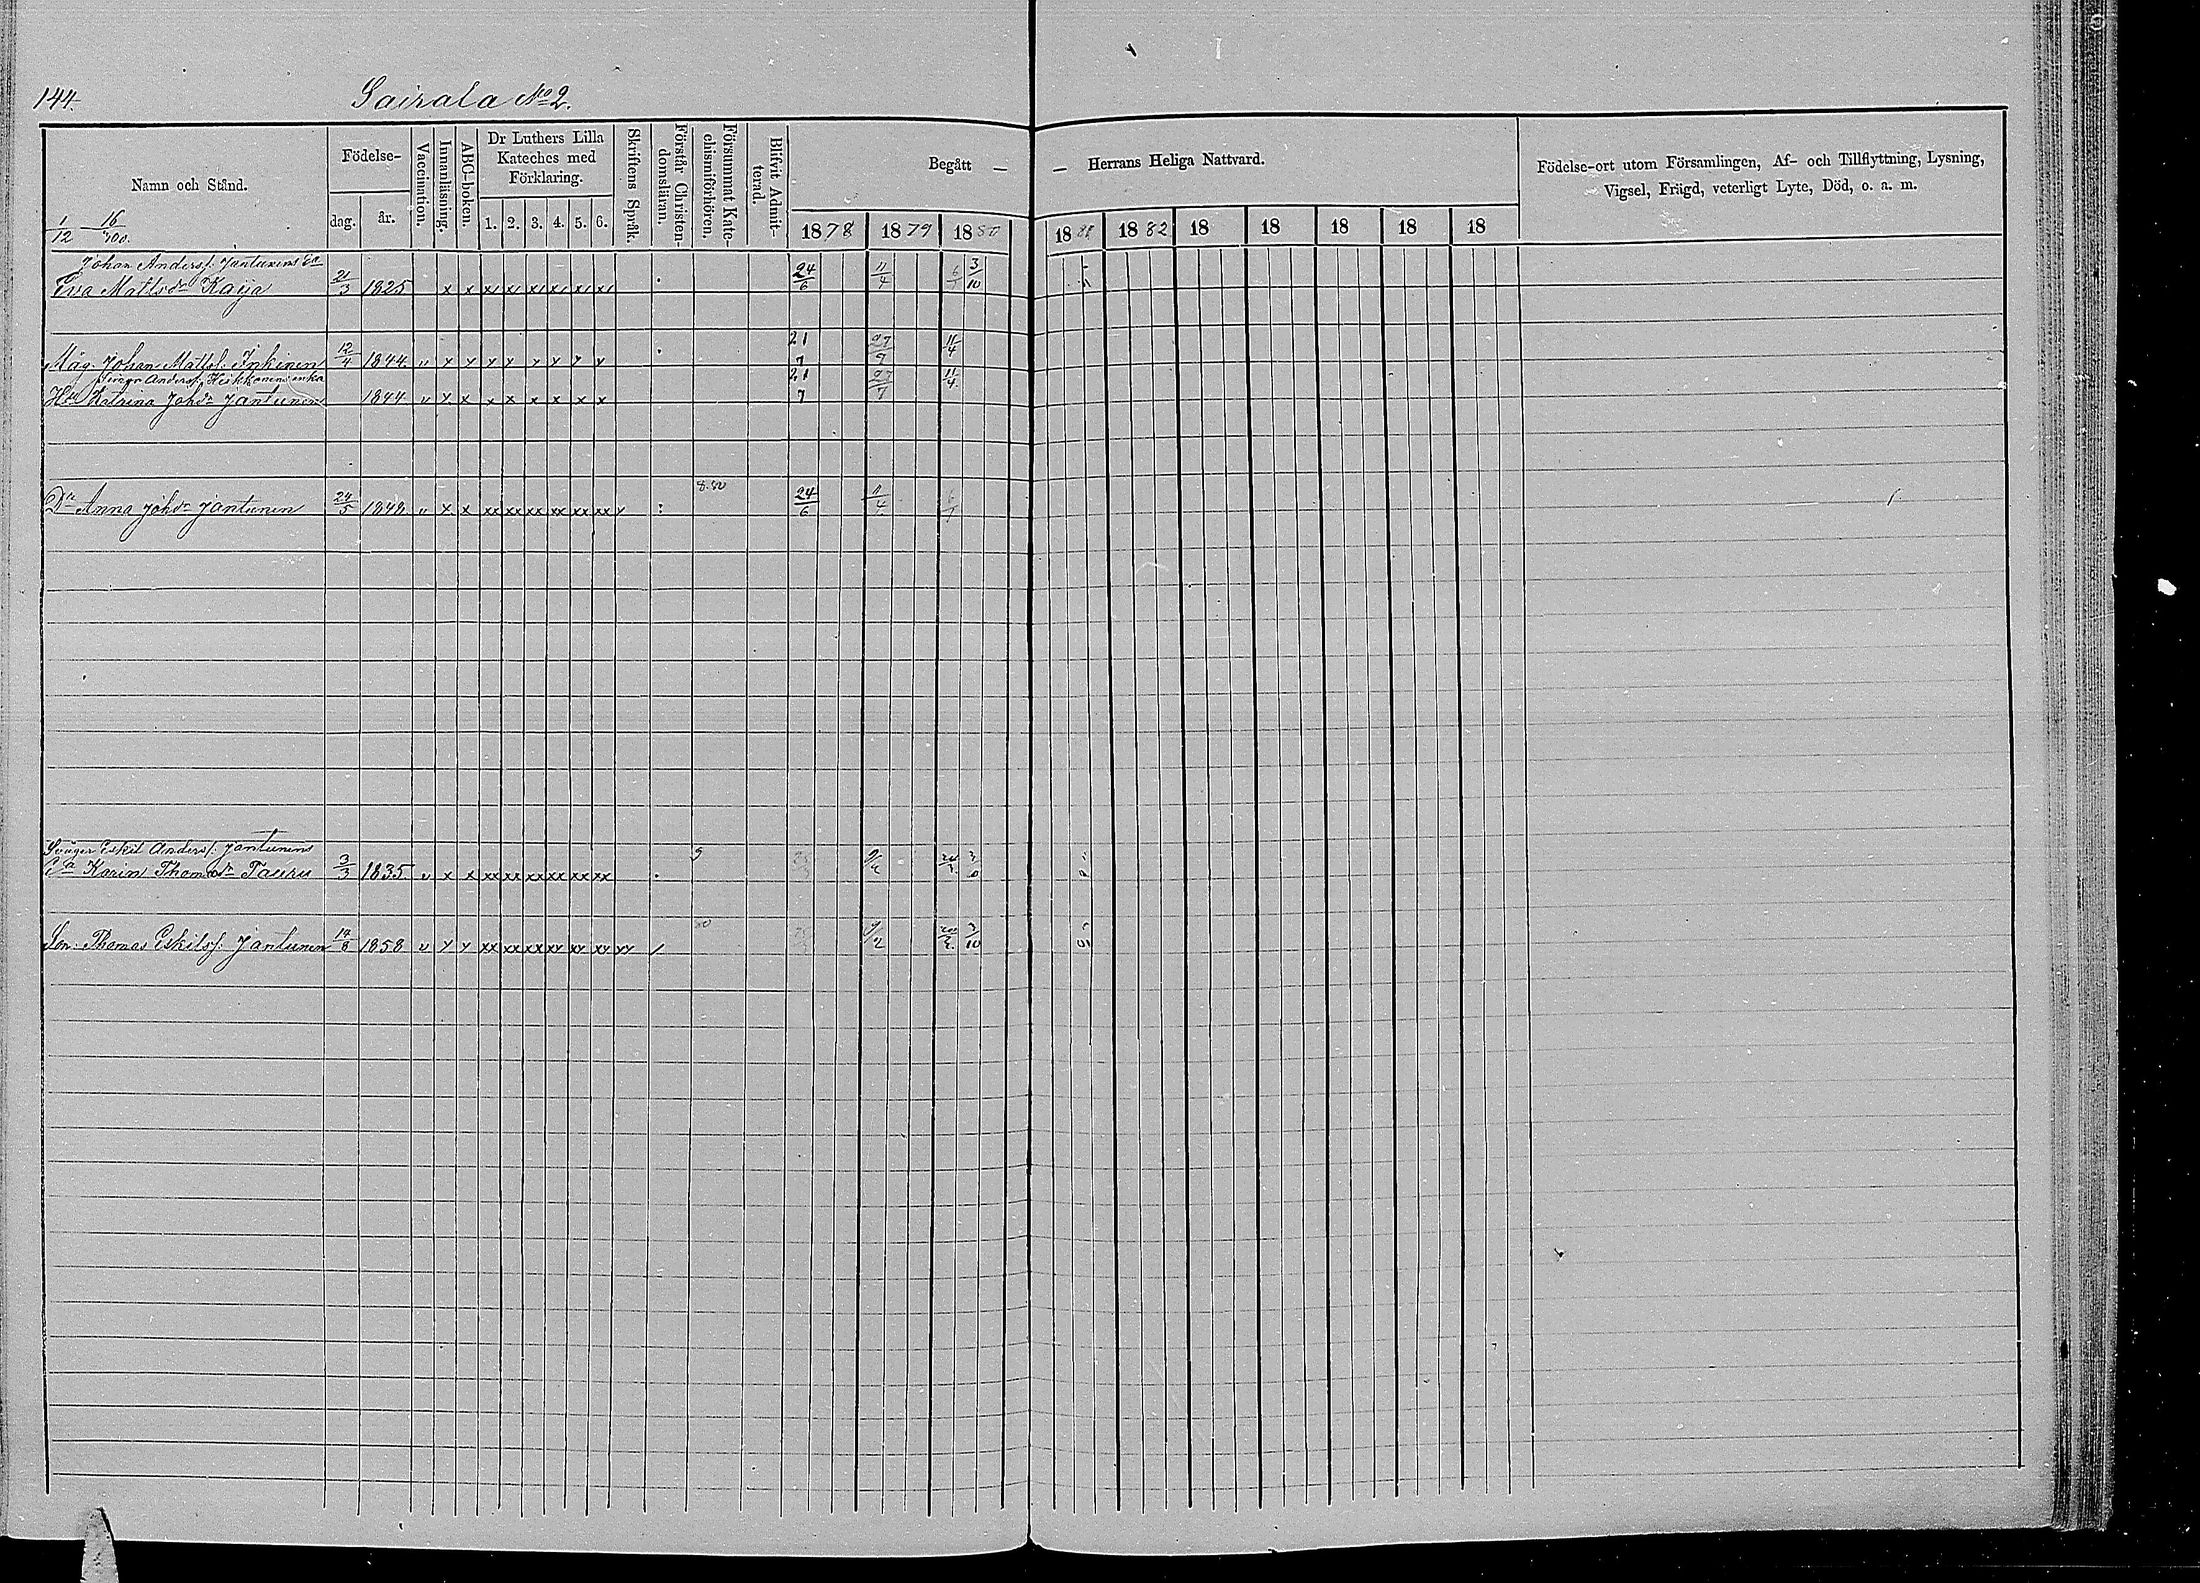 144. Sairala No 2.
Namn och Stånd.
1/12 16/400.
Födelse-
dag. år.
Vaccination.
Innanläsning.
ABC-boken.
Dr Luthers Lilla
Kateches med
Förklaring.
1. 2. 3. 4. 5. 6.
Skriftens Språk.
Förstår Christen-
domsläran.
Försummat Kate-
chismiförhören.
Blifvit Admit-
terad.
Begått — — Herrans Heliga Nattvard.
1878 1879 1880 1881 1882 18 18 18 18 18
Födelse-ort utom Församlingen, Af- och Tillflyttning, Lysning,
Vigsel, Frägd, veterligt Lyte, Död, o. a. m.
Johan Anderss. Jantunens Ea
Eva Mattsdr Kaija 21/3 1825 x x x x x x x x 24/6 11/4 6/1 3/10
Måg. Johan Mattss. Inkinen 12/4 1844 v x x x x x x x x 21/7 27/9 11/4
Anderss. Heikkonens enka
Hu Katrina Johdr Jantunen 1844 v x x x x x x x x 21/7 27/7 11/4
Dr Anna Johdr Jantunen 24/5 1848 v x x xx xx xx xx xx xx x : 8.80 24/6 11/4 6/1
Svåger Eskil Anderss. Jantunens
Ea Karin Thomadr Tauru 3/3 1835 v x x xx xx xx xx xx xx 9
Son. Thomas Eskilss. Jantunen 14/8 1858 v x x xx xx xx xx xx xx xx / 80 9/2 3/10